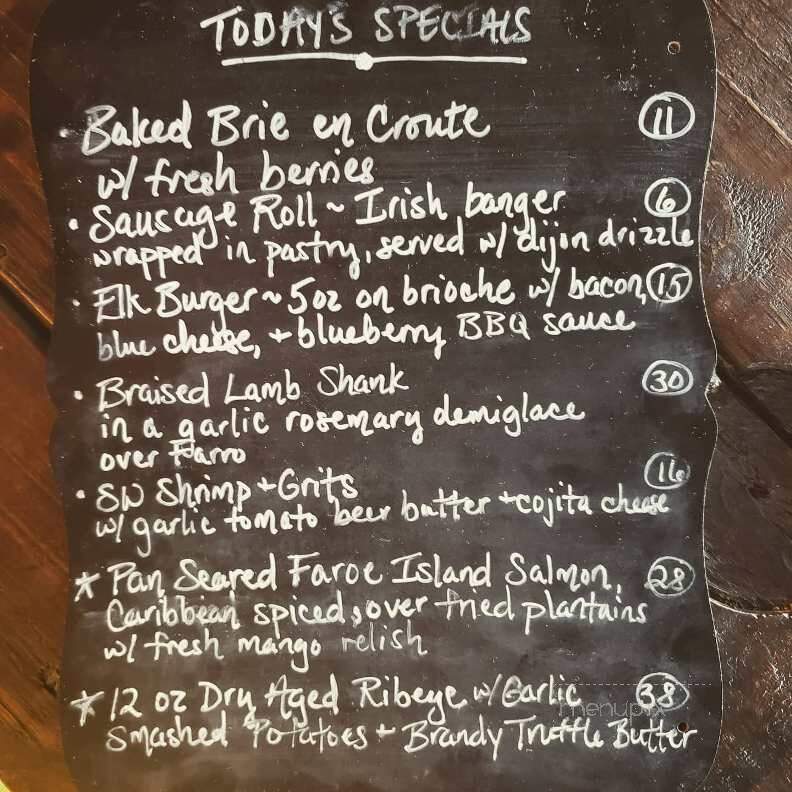 TODAY'S SPECIALS
Baked Brie en Croute 11
w/ fresh berries
• Sausage Roll ~ Irish banger 6
wrapped in pastry, served w/ dijon drizzle
• Elk Burger ~ 5oz on brioche w/ bacon, 15
blue cheese, + blueberry BBQ sauce
• Braised Lamb Shank 30
in a garlic rosemary demiglace
over Farro
• SW Shrimp + Grits 16
w/ garlic tomato beer butter + cojita cheese
* Pan Seared Faroe Island Salmon, 28
Caribbean spiced, over fried plantains
w/ fresh mango relish
* 12 oz Dry Aged Ribeye w/ Garlic 38
menupix
Smashed Potatoes + Brandy Truffle Butter